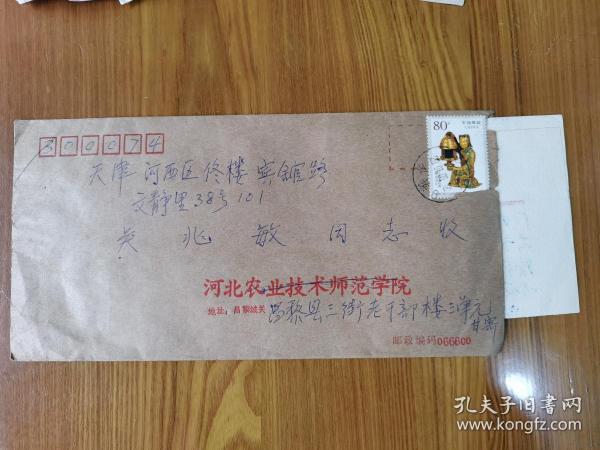 300074
80分
中国邮政
天津 河西区佟楼 宾馆路
文静里38号101
吴兆敏同志收
河北农业技术师范学院
地址：昌黎城关 昌黎县三街老干部楼三单元
甘寄
邮政编码066600
孔夫子旧书网
kongfz.com